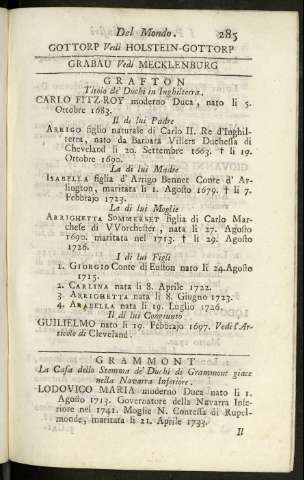 Del Mondo. 285
GOTTORP Vedi HOLSTEIN-GOTTORP
GRABAU Vedi MECKLENBURG
GRAFTON
Titolo de' Duchi in Inghilterra.
CARLO FITZ-ROY moderno Duca, nato li 5.
Ottobre 1683.
Il di lui Padre
ARRIGO figlio naturale di Carlo II. Re d'Inghil-
terra, nato da Barbara Villers Duchessa di
Cheveland li 20. Settembre 1663. † li 19.
Ottobre 1690.
La di lui Madre
ISABELLA figlia d'Arrigo Bennet Conte d'Ar-
lington, maritata li 1. Agosto 1679. † li 7.
Febbrajo 1723.
La di lui Moglie
ARRIGHETTA SOMMERSET figlia di Carlo Mar-
chese di VVorchester, nata li 27. Agosto
1690. maritata nel 1713. † li 29. Agosto
1726.
I di lui Figli
1. GIORGIO Conte di Euston nato li 24. Agosto
1715.
2. CARLINA nata li 8. Aprile 1722.
3 ARRIGHETTA nata li 8. Giugno 1723.
4. ARABELLA nata li 19. Luglio 1726.
Il di lui Congiunto
GUILIELMO nato li 19. Febbrajo 1697. Vedi l'Ar-
ticolo di Cleveland.
GRAMMONT
La Casa dello Stemma de' Duchi di Grammont giace
nella Navarra Inferiore.
LODOVICO MARIA moderno Duca nato li 1.
Agosto 1713. Governatore della Navarra Infe-
riore nel 1741. Moglie N. Contessa di Rupel-
monde, maritata li 21. Aprile 1733.
Il